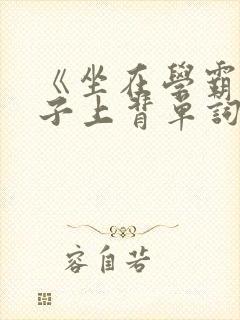 《坐在學霸
子上背單詞
容自若